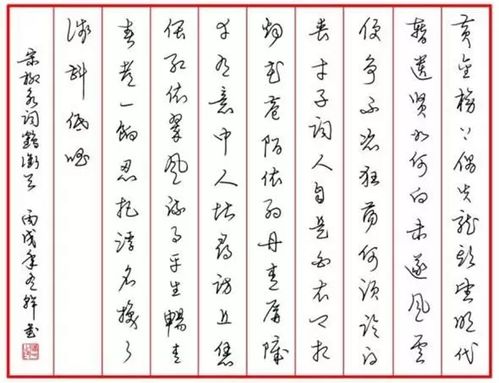 黄金榜上偶失龍头望明代
暂遗贤如何向未遂风云
便争不恣狂荡何须论得
丧才子词人自是白衣卿相
烟花巷陌依约丹青屏障
幸有意中人堪寻访且恁
偎红依翠风流事平生暢青
春都一饷忍把浮名换了
浅斟低唱
宋柳永词鶴衝天 丙戌年祥书